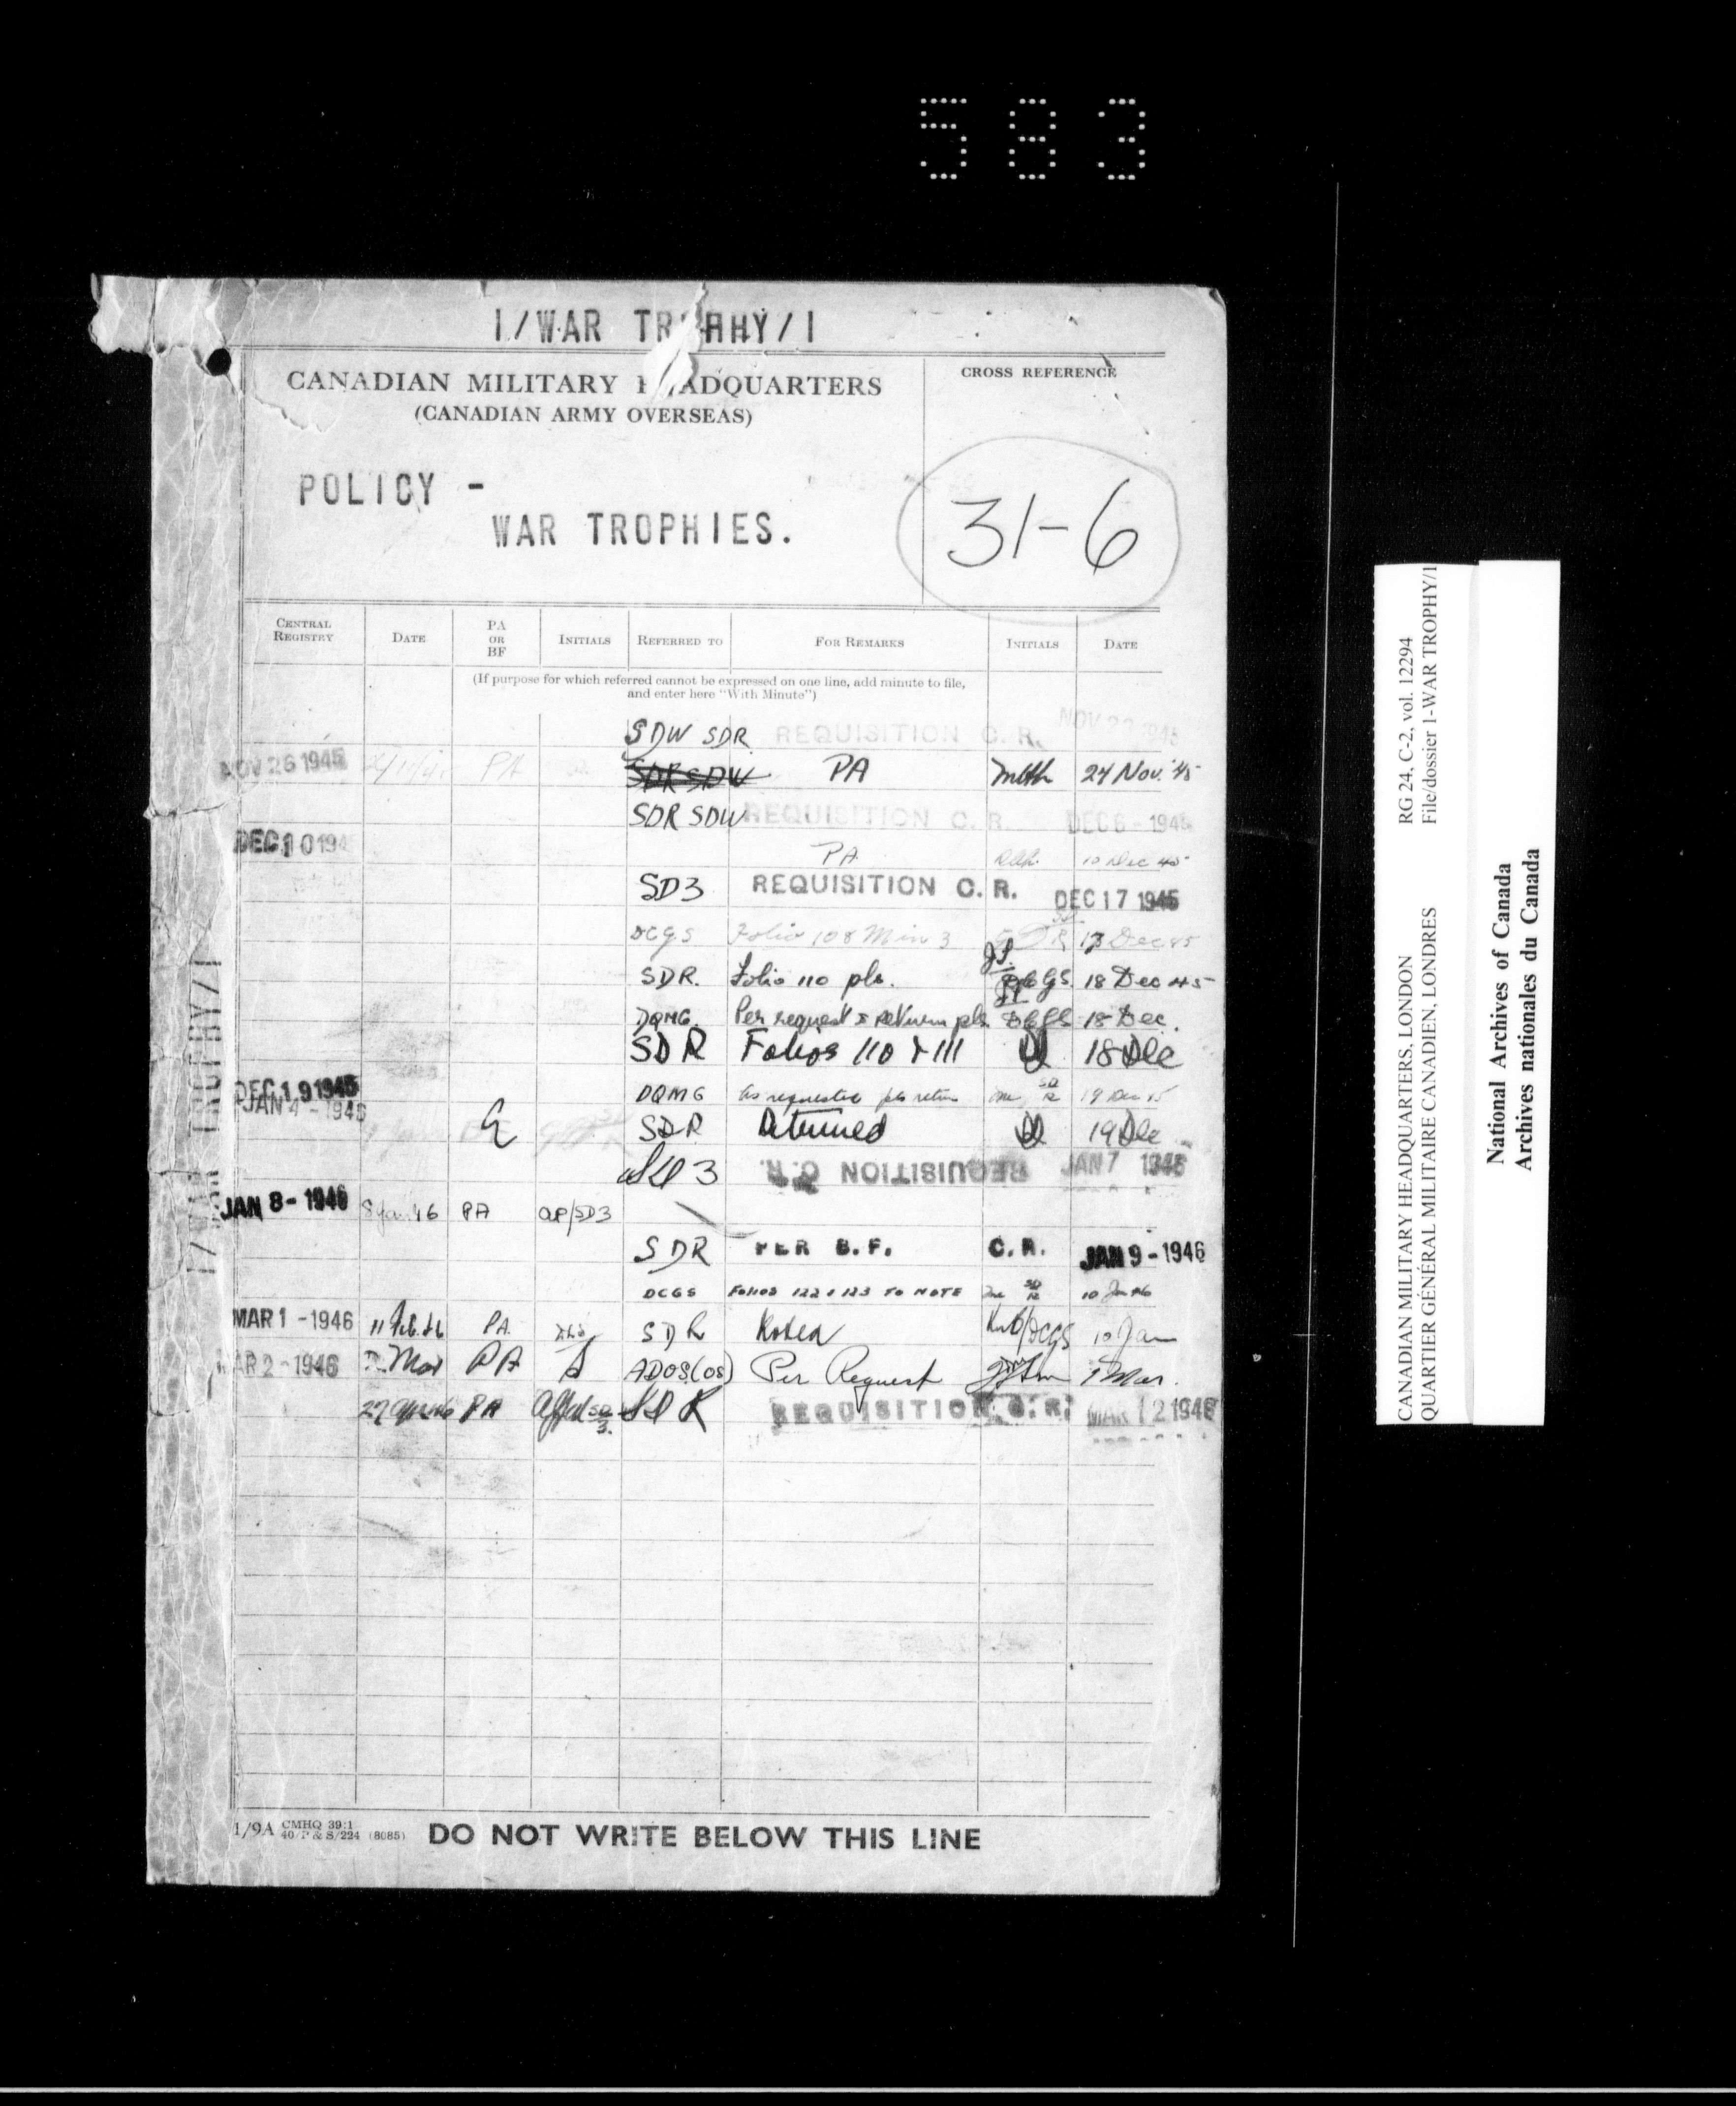 583
1/WAR TROPHY/1
CANADIAN MILITARY HEADQUARTERS
(CANADIAN ARMY OVERSEAS)
CROSS REFERENCE
POLICY -
WAR TROPHIES.
31-6
CENTRAL REGISTRY DATE PA OR BF INITIALS REFERRED TO FOR REMARKS INITIALS DATE
(If purpose for which referred cannot be expressed on one line, add minute to file,
and enter here "With Minute")
SDW SDR REQUISITION C. R. NOV 23 1945
NOV 26 1945 PA SDR SDW PA 24 Nov. '45
SDR SDW REQUISITION C. R. DEC 6 - 1945
DEC 10 194
PA 10 Dec 45
SD3 REQUISITION C. R. DEC 17 1945
DCGS Folio 108 Min 3 Dec 45
SDR. Folio 110 pls. DCGS 18 Dec 45
DQMG. Per request & return pls. DCGS 18 Dec.
SDR Folios 110 & 111 18 Dec
DEC 19 1945 DQMG As requested pls return 19 Dec 45
JAN 4 - 1946 SDR Returned 19 Dec
SD 3 REQUISITION C. R. JAN 7 1946
JAN 8 - 1946 8 Jan 46 PA /SD3
SDR PER B. F. C. R. JAN 9 - 1946
DCGS FOLIOS 122 & 123 TO NOTE 10 Jan 46
MAR 1 - 1946 11 Feb. 46 PA. SDR Noted /DCGS 10 Jan
MAR 2 - 1946 Mar PA ADOS(OS) Per Request 1 Mar.
27 Apr 46 PA SD 3. SDR REQUISITION C. R. MAR 12 1946
1/9A CMHQ 39:1
40/P & S/224 (8085)
DO NOT WRITE BELOW THIS LINE
1/WAR TROPHY/1
CANADIAN MILITARY HEADQUARTERS, LONDON RG 24, C-2, vol. 12294
QUARTIER GÉNÉRAL MILITAIRE CANADIEN, LONDRES File/dossier 1-WAR TROPHY/1
National Archives of Canada
Archives nationales du Canada